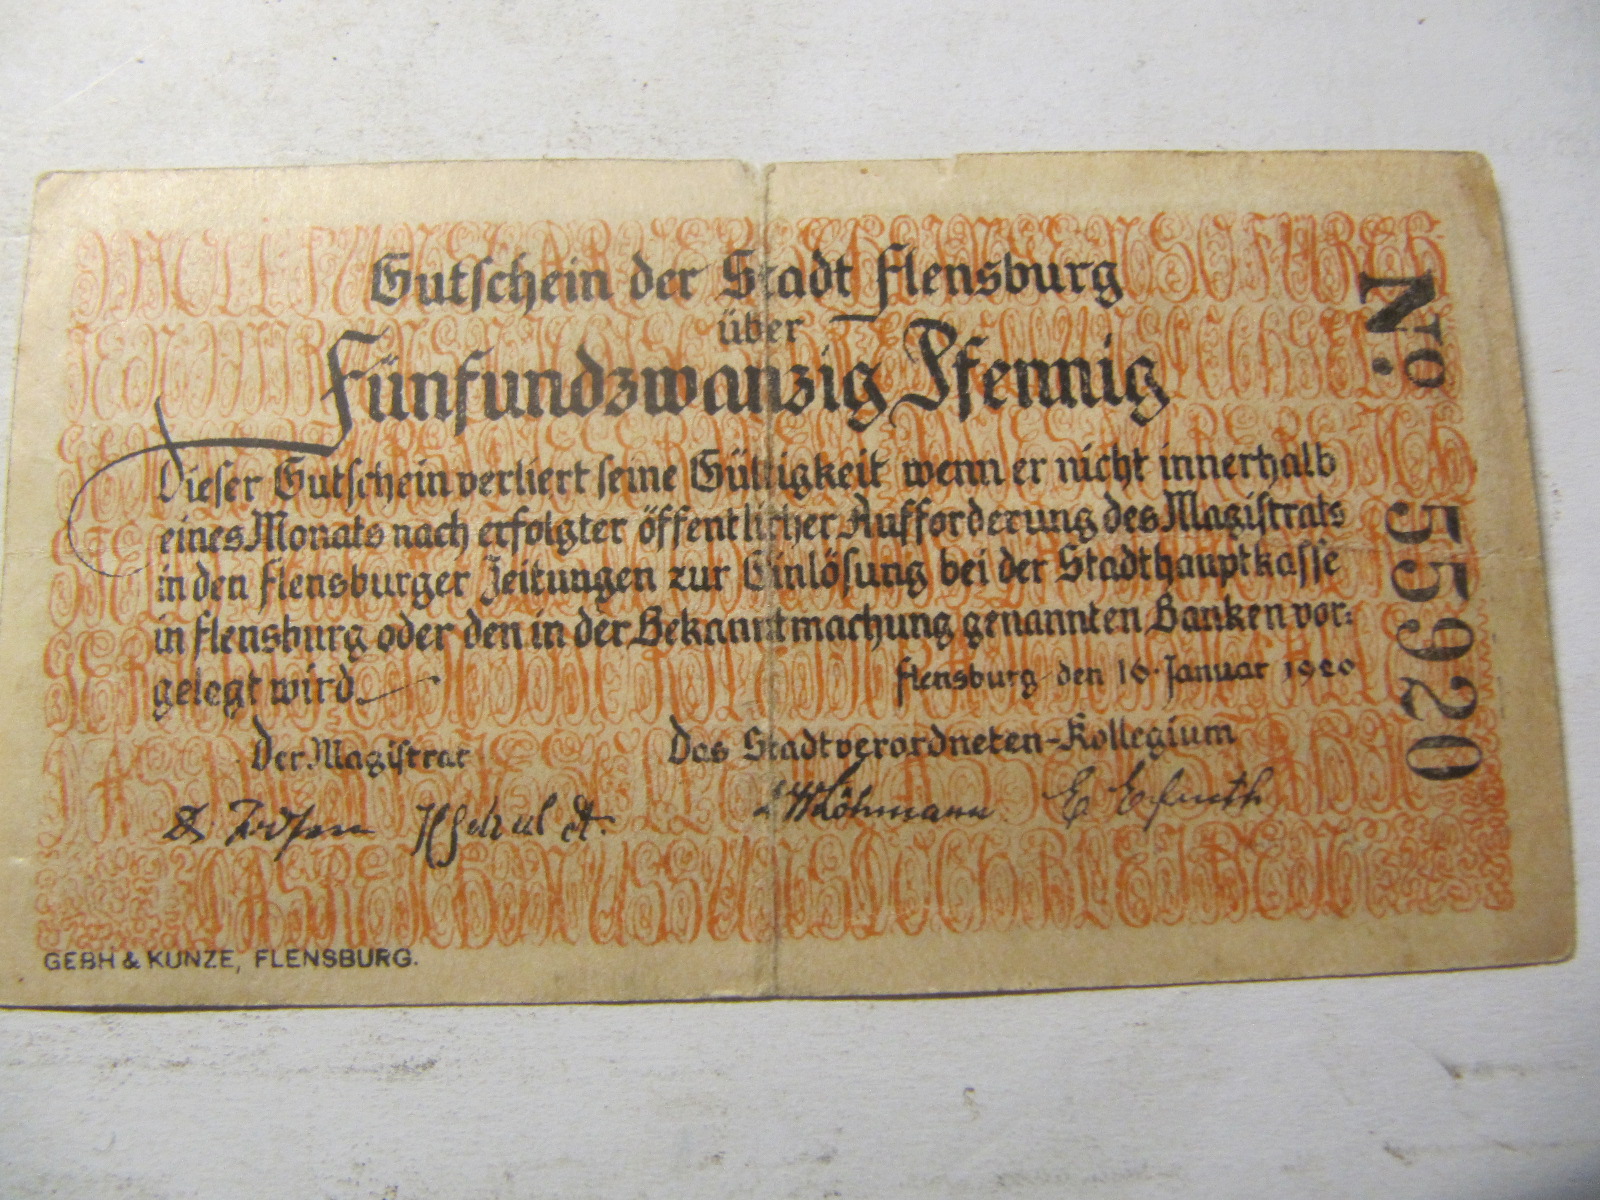 Gutschein der Stadt Flensburg
über
Fünfundzwanzig Pfennig
Dieser Gutschein verliert seine Gültigkeit wenn er nicht innerhalb
eines Monats nach erfolgter öffentlicher Aufforderung des Magistrats
in den Flensburger Zeitungen zur Einlösung bei der Stadthauptkasse
in Flensburg oder den in der Bekanntmachung genannten Banken vor-
gelegt wird.
Flensburg den 16. Januar 1920
Der Magistrat
Das Stadtverordneten-Kollegium
Löhmann
GEBH & KUNZE, FLENSBURG.
No. 55920